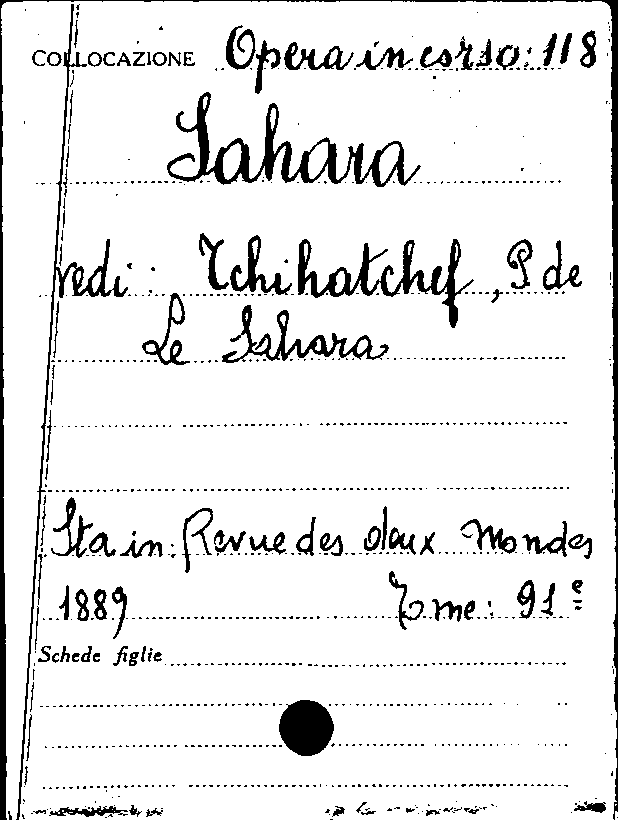 COLLOCAZIONE Opera in corso: 118
Sahara
vedi: Tchihatchef, P de
Le Sahara
Sta in: Revue des deux Mondes
1889 Tome: 91e
Schede figlie